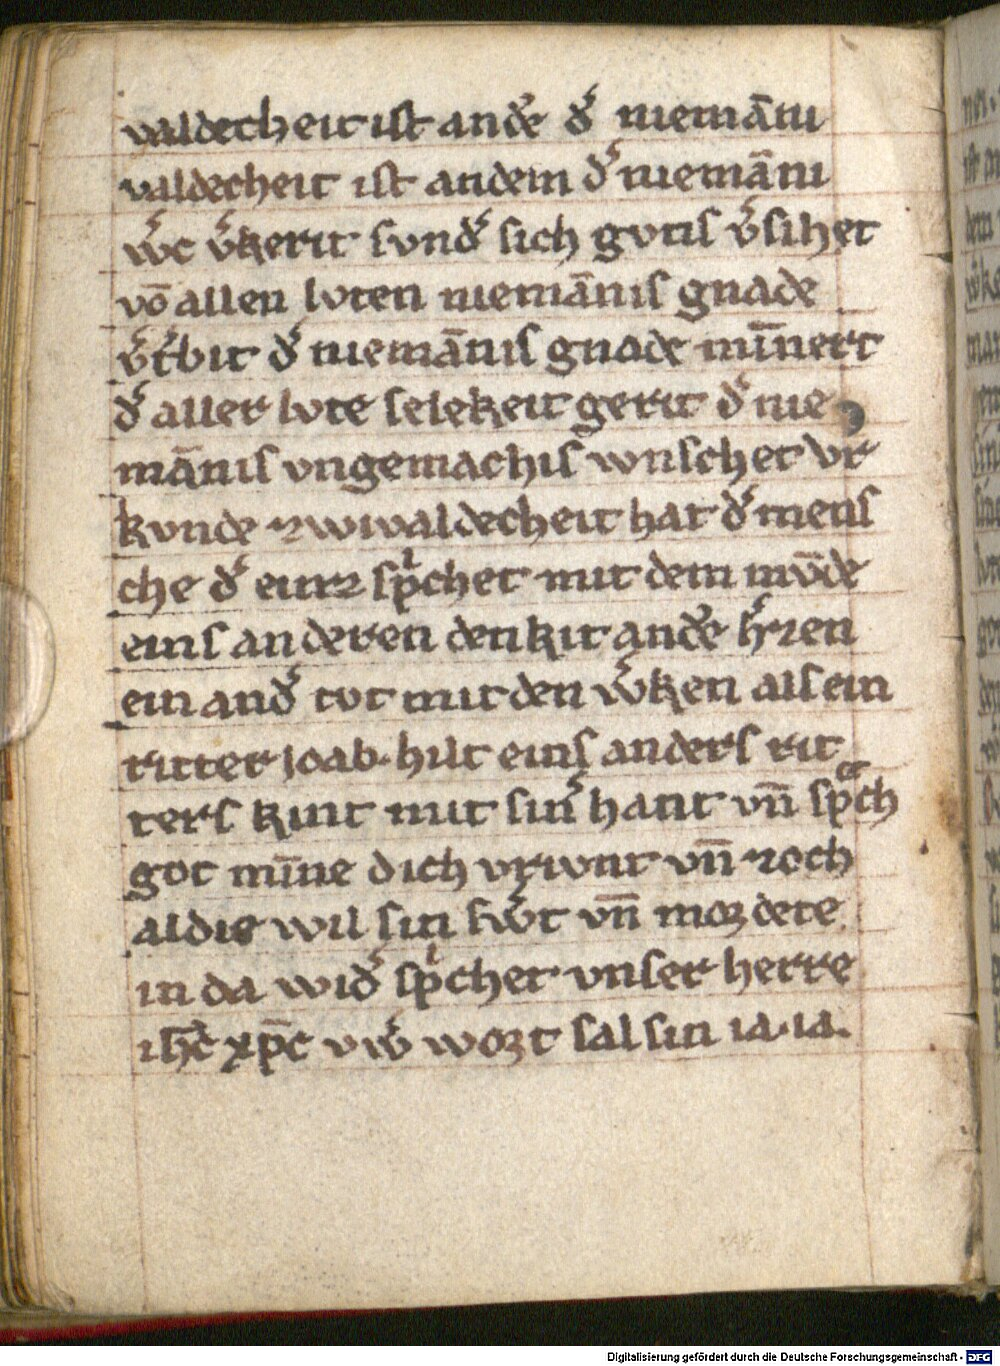 valdecheit ist andͤ dˢ niemāni
valdecheit ist andem dˢ niemāni
wˢc vˢkerit sundˢ sich gvtis vˢsihet
vō allen lvten niemānis gnade
vˢtˢbit dˢ niemānis gnade mīnert
dˢ aller lvte selekeit gerit dˢ nie
mānis vngemachis wnschet vr
kvnde zwiwaldecheit hat dˢ mens
che dˢ einz spͥchet mit dem mvͦde
eins anderen denkit andˢe hˢzen
ein andˢ tot mit den wˢken als ein
ritter joab· hilt eins anders rit
ters kint mit sinˢ hant vn̄ spͣch
got mīne dich vrwnt vn̄ zoch
aldie wil sin swˢt vn̄ mordete
in da widˢ spͥchet vnser herre
ih̄c xp̄c vwˢ wort sal sin ia·ia.
Digitalisierung gefördert durch die Deutsche Forschungsgemeinschaft - DFG